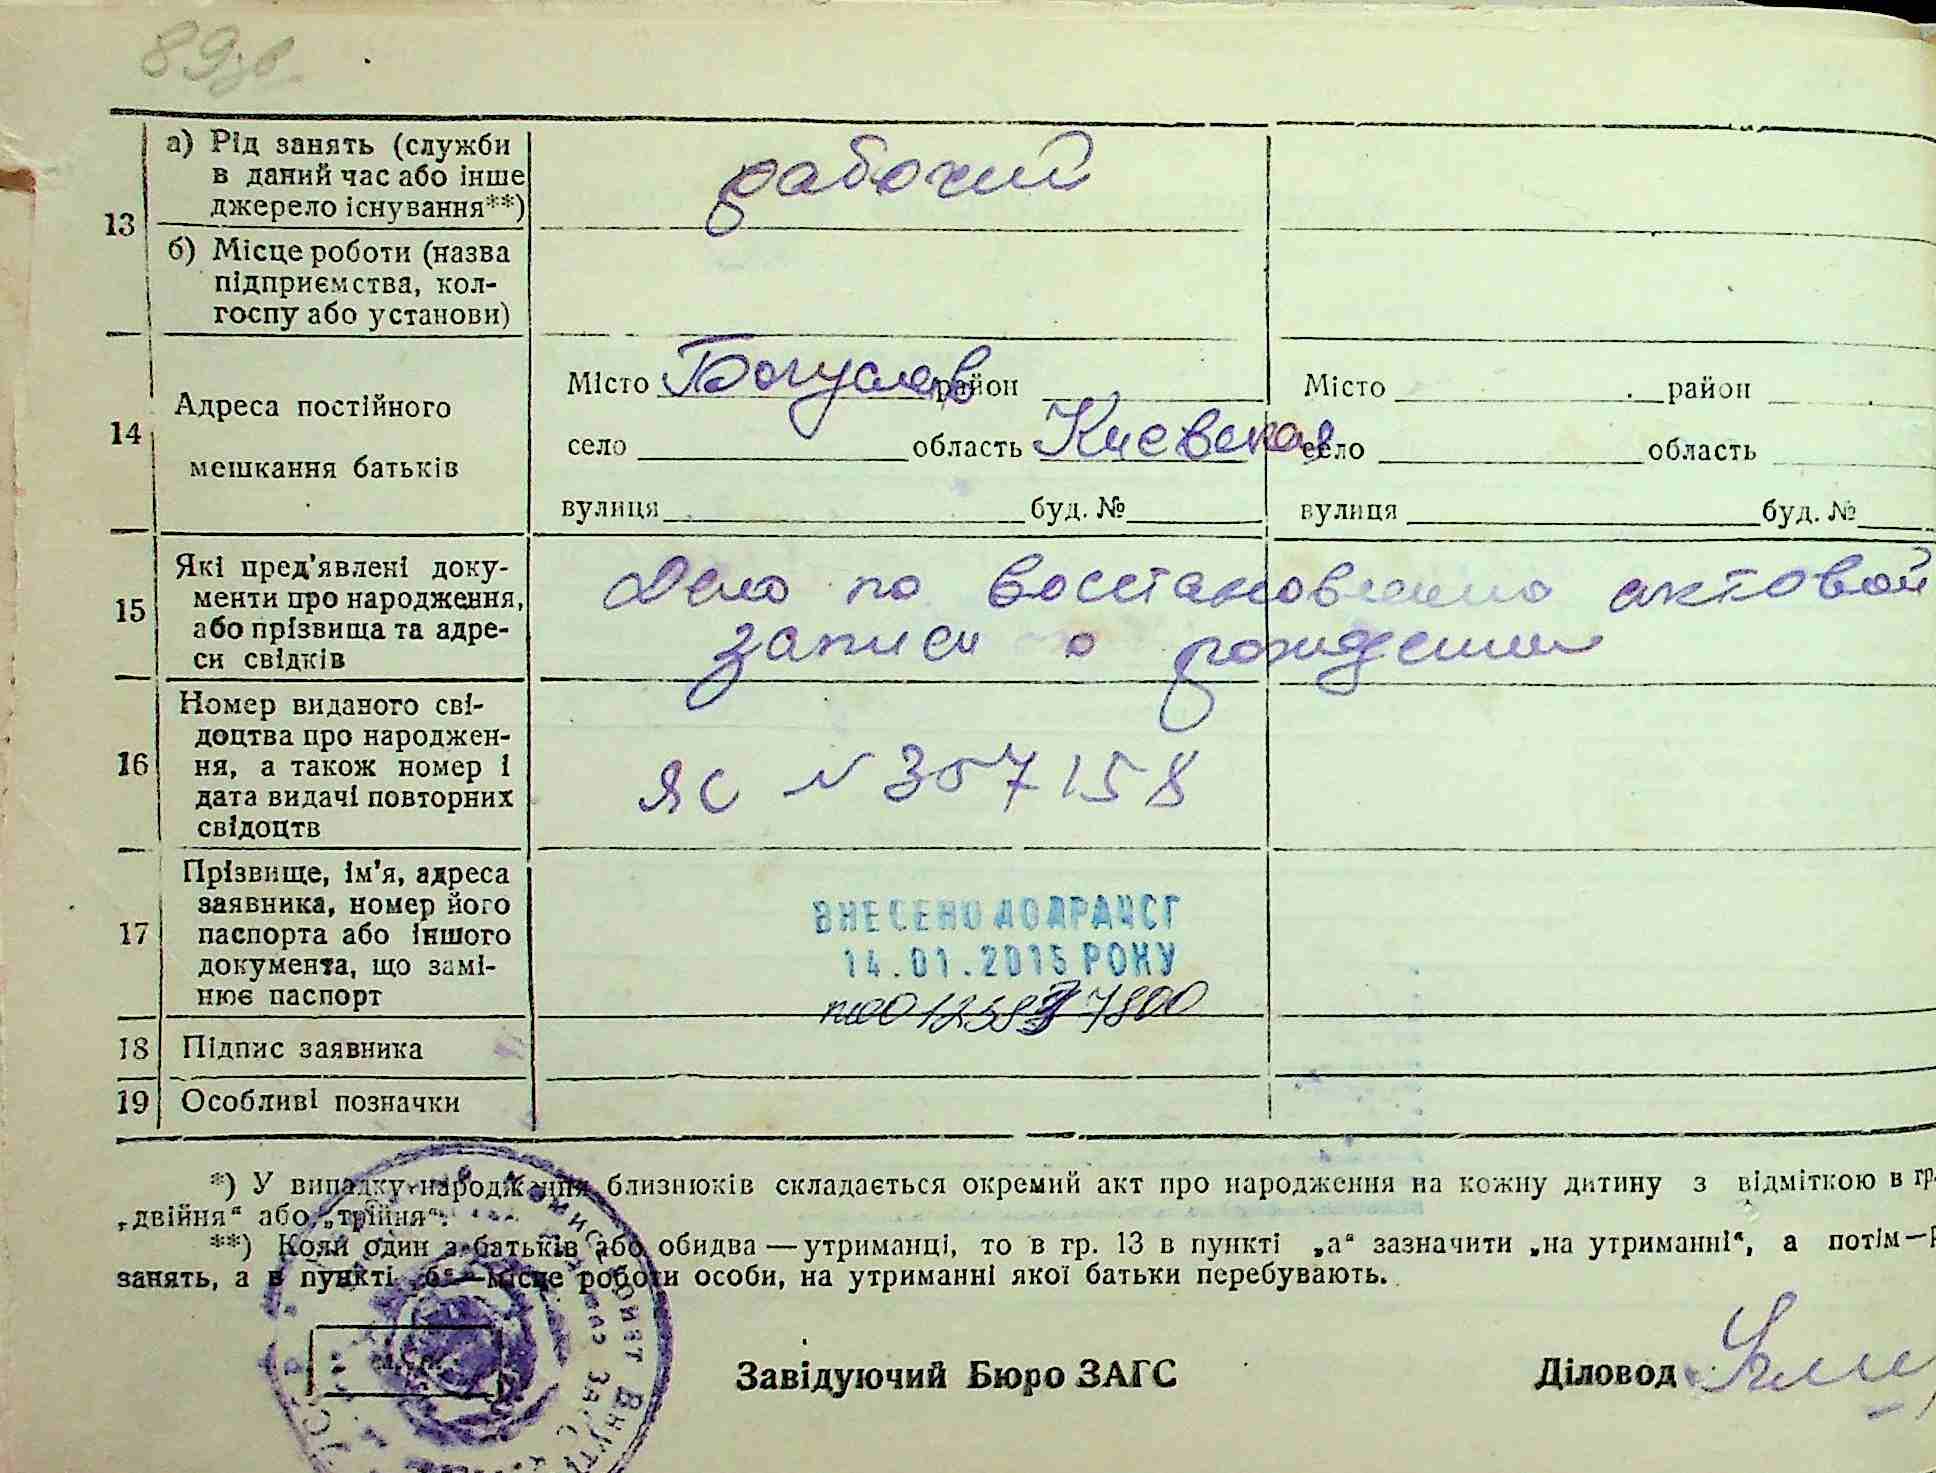 89зв.
13
а) Рід занять (служби
в даний час або інше
джерело існування**)
рабочий
б) Місце роботи (назва
підприємства, кол-
госпу або установи)
14
Адреса постійного
мешкання батьків
Місто Богуслав район
Місто район
село область Киевская
село область
вулиця буд. №
вулиця буд. №
15
Які пред'явлені доку-
менти про народження,
або прізвища та адре-
си свідків
Дело по восстановлению актовой
записи о рождении
16
Номер виданого сві-
доцтва про народжен-
ня, а також номер і
дата видачі повторних
свідоцтв
ЯС № 307158
17
Прізвище, ім'я, адреса
заявника, номер його
паспорта або іншого
документа, що замі-
нює паспорт
ВНЕСЕНО ДО ДРАЦСГ
14.01.2015 РОКУ
18 Підпис заявника
19 Особливі позначки
*) У випадку народження близнюків складається окремий акт про народження на кожну дитину з відміткою в гр.
„двійня“ або „трійня“.
**) Коли один з батьків або обидва — утриманці, то в гр. 13 в пункті „а“ зазначити „на утриманні“, а потім—р
занять, а в пункті „б“—місце роботи особи, на утриманні якої батьки перебувають.
Завідуючий Бюро ЗАГС
Діловод